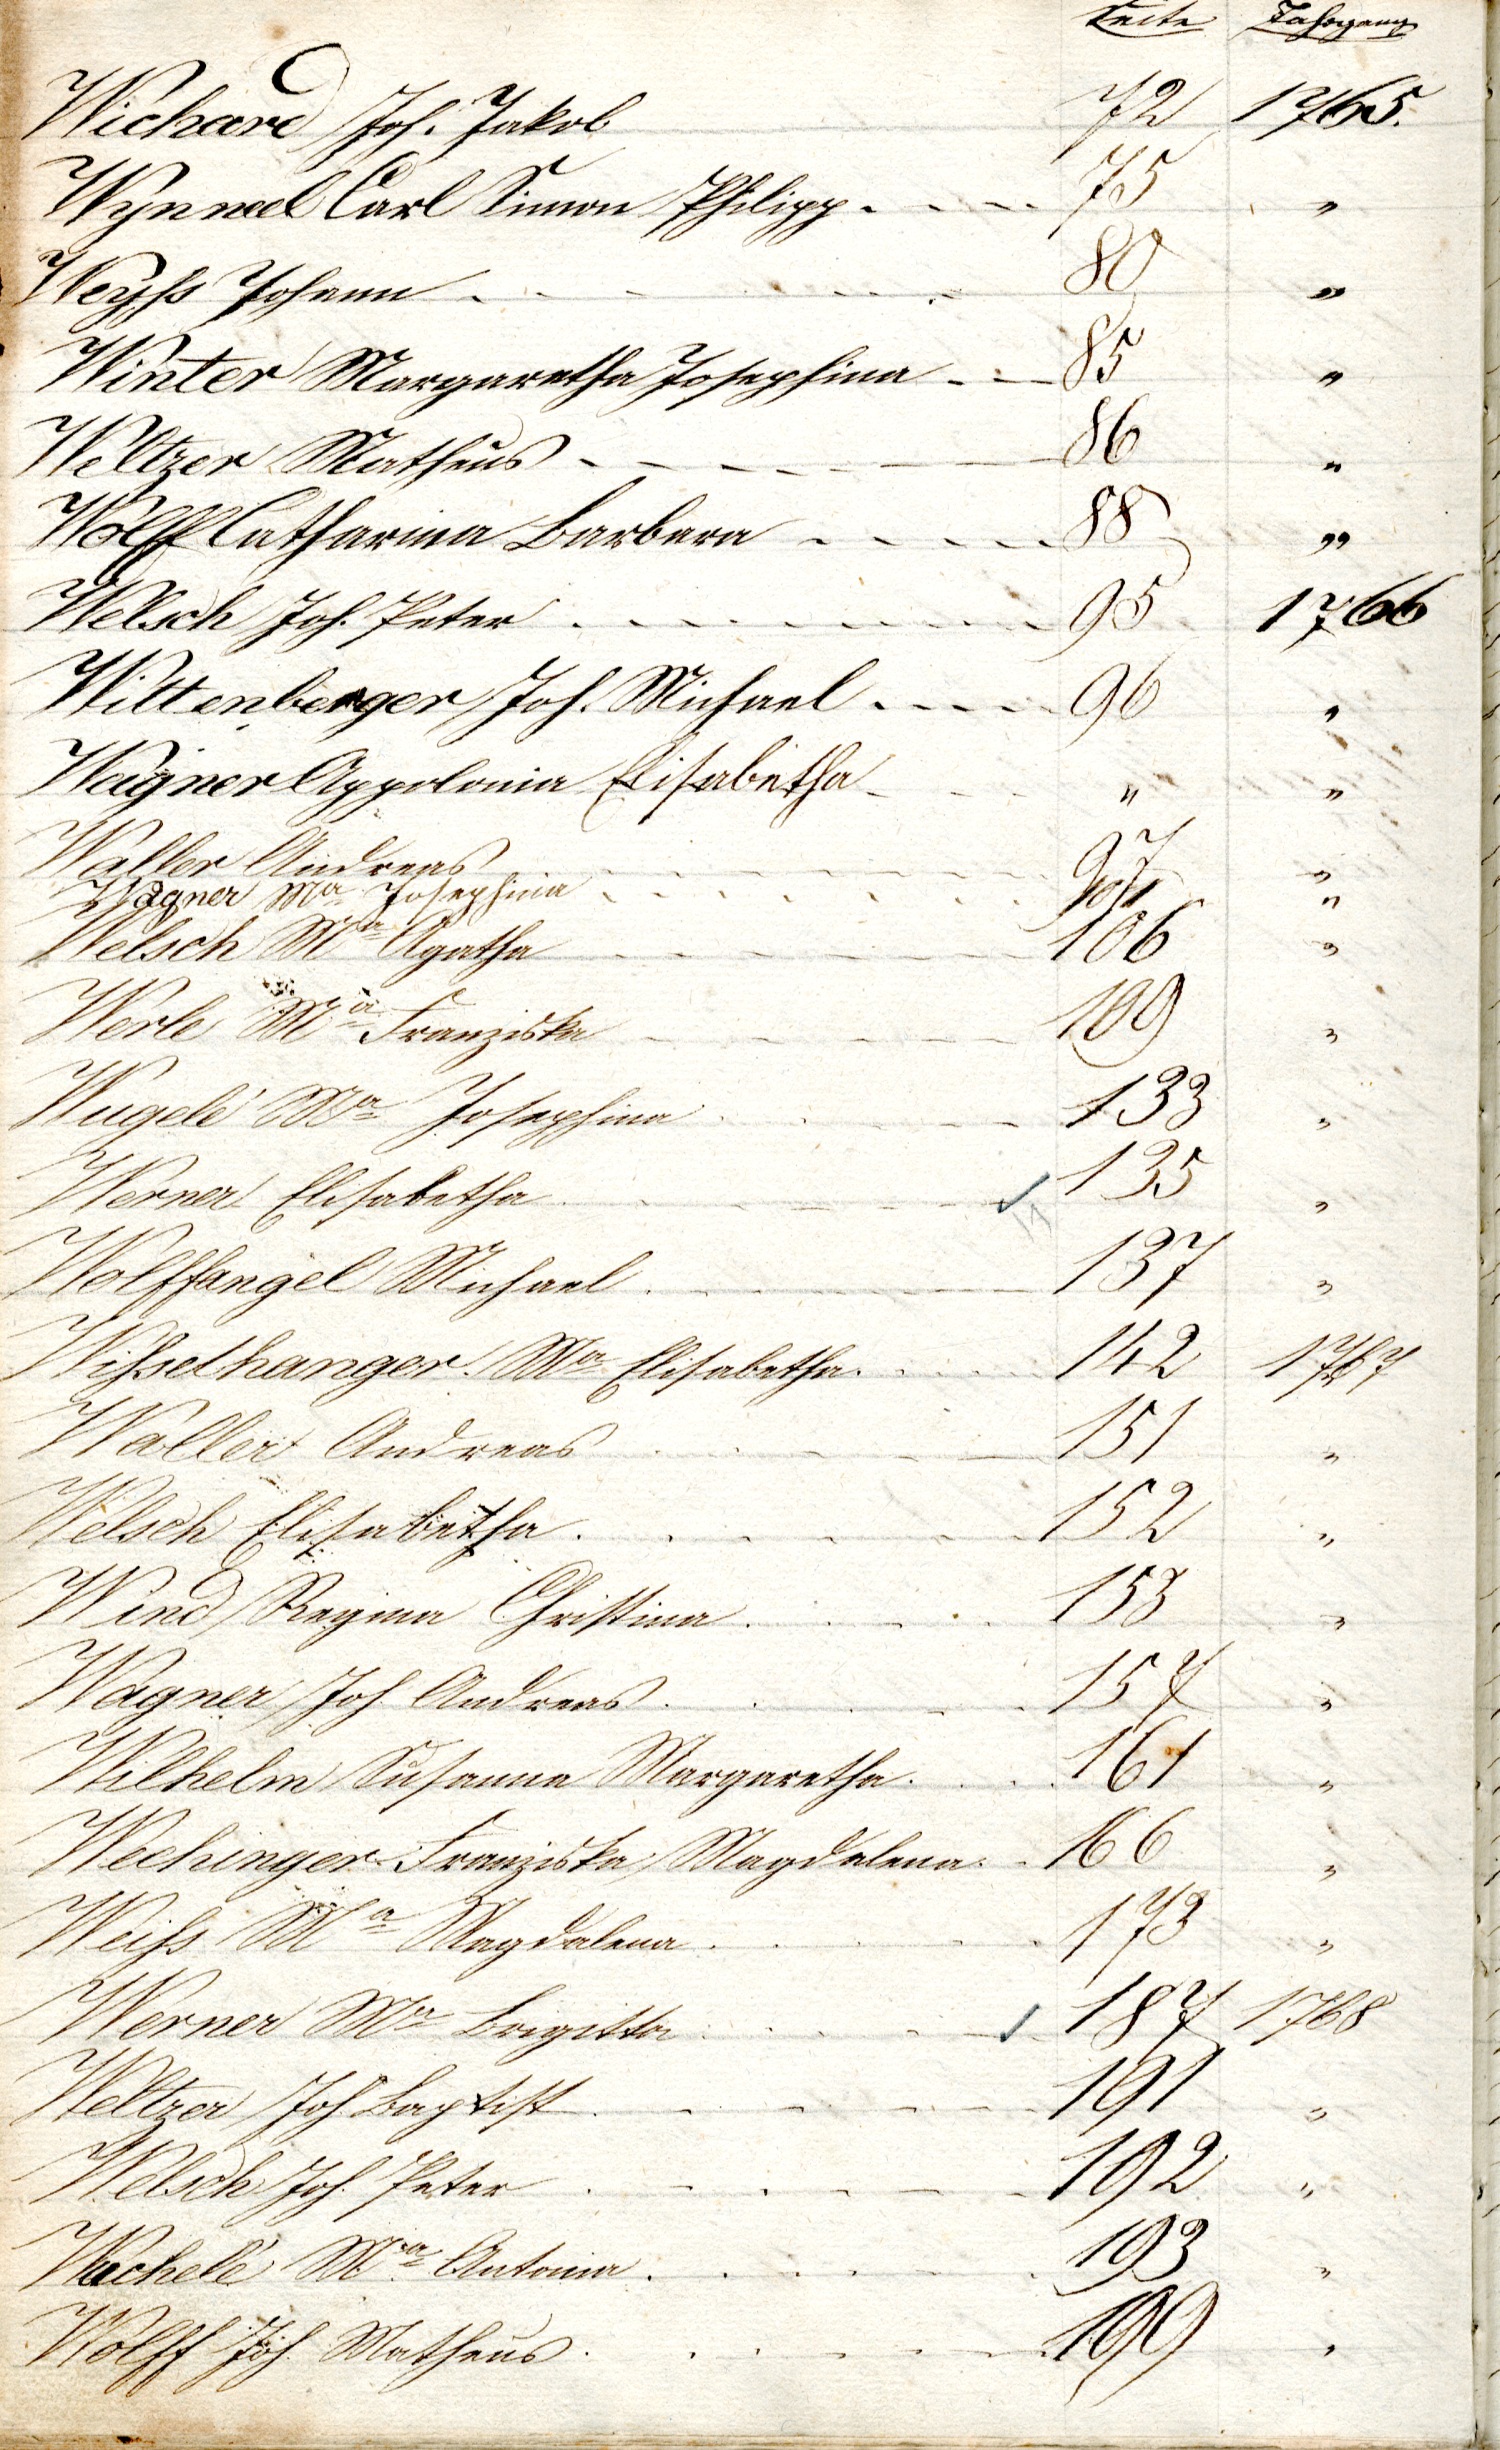 Seite Jahrgang
Wichard Joh. Jakob 72 1765.
Wynnel Carl Simon Philipp - - - - 75 "
Weyhs Johann - - - - - 80 "
Winter Margaretha Josephina - - 85 "
Weltzer Matheus - - - - - 86 "
Wolff Catharina Barbara - - - - 88 "
Welsch Joh. Peter - - - - - - 95 1766
Wittenberger Joh. Michael - - - - 96 "
Wagner Appolonia Elisabetha - - - " "
Waller Andreas - - - - - 97 "
Wagner Ma Josephina - - - - - "
Welsch Ma Agatha - - - - - 106 "
Werle Ma Franziska - - - - - 109 "
Wugelé Ma Josephina - - - - 133 "
Werner Elisabetha - - - - - 135 "
Wolffangel Michael - - - - - 137 "
Wihselhanger Ma Elisabetha - - - 142 1767
Waller Andreas - - - - - 151 "
Welsch Elisabetha - - - - - 152 "
Wind Regina Christina - - - - 153 "
Wagner Joh Andreas - - - - - 157 "
Wilhelm Susanna Margaretha - - - 161 "
Wechinger Franziska Magdalena - - 166 "
Weihs Ma Magdalena - - - - - 173 "
Werner Ma Brigitta - - - - 187 1768
Weltzer Joh Baptist - - - - - 191 "
Welsch Joh. Peter - - - - - 192 "
Wuchelé Ma Antonia - - - - - 193 "
Wolff Joh. Matheus - - - - - 199 "